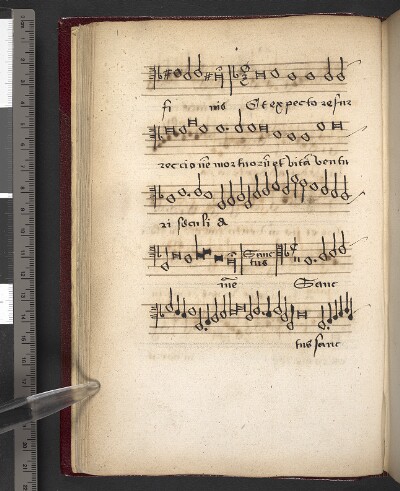 fi nis Et expecto resur
reccionē mortuorū et vitā ventu
ri seculi a
Sanc
tus
mē Sanc
tus sanc